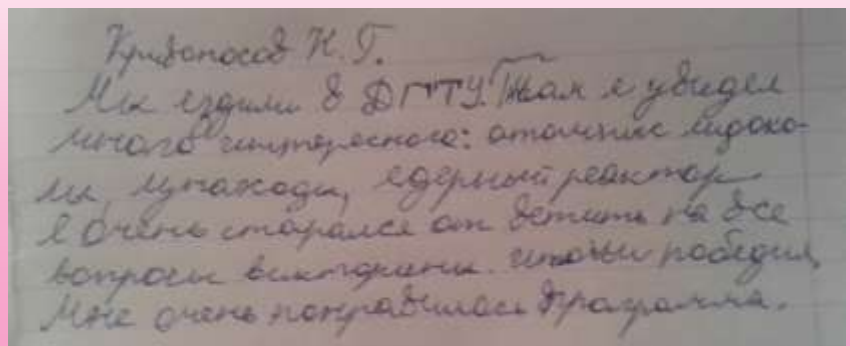 Кривоносов Н.Г.
Мы ездили в ДГТУ. Там я увидел
много интересного: атомные ледоко-
лы, луноходы, едерный реактор
я очень старался от ветить на все
вопросы викторины. победил
Мне очень понравилась программа.